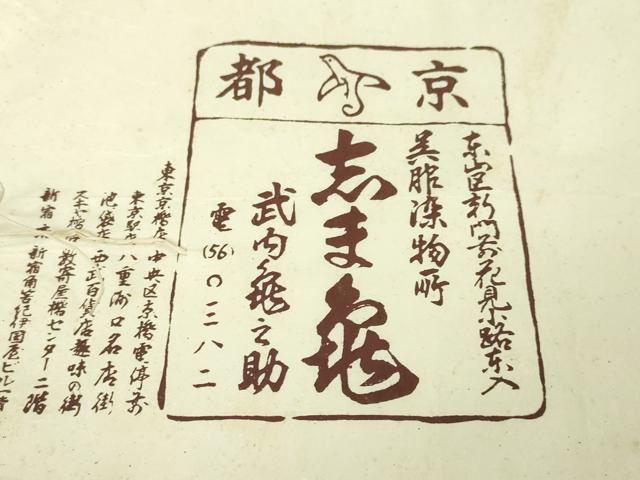 京都
東山区新門前花見小路東入
呉服染物所
志ま亀
武内龜之助
電(56)〇三八二
東京京橋店 中央区京橋電停前
東京駅内 八重洲口名店街
池袋店 西武百貨店趣味の街
スキヤ橋店 数寄屋橋センター二階
新宿店 新宿角筈紀伊国屋ビル一階